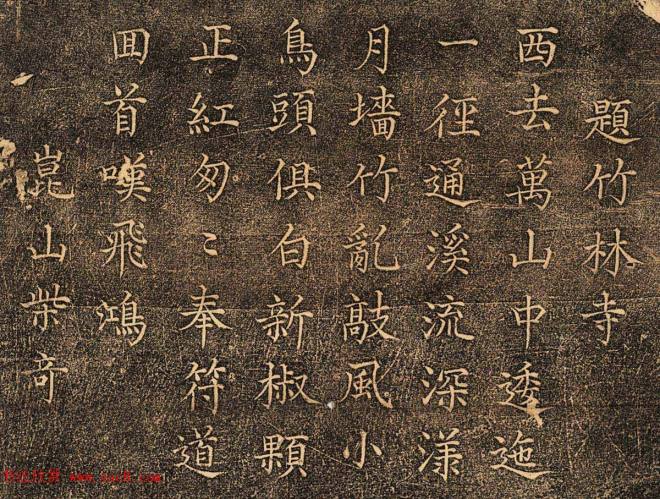 題竹林寺
西去萬山中逶迤
一徑通溪流深漾
月墻竹亂敲風小
鳥頭俱白新椒顆
正紅匆〻奉符道
囬首嘆飛鴻
崑山柴奇
书法欣赏 www.yac8.com